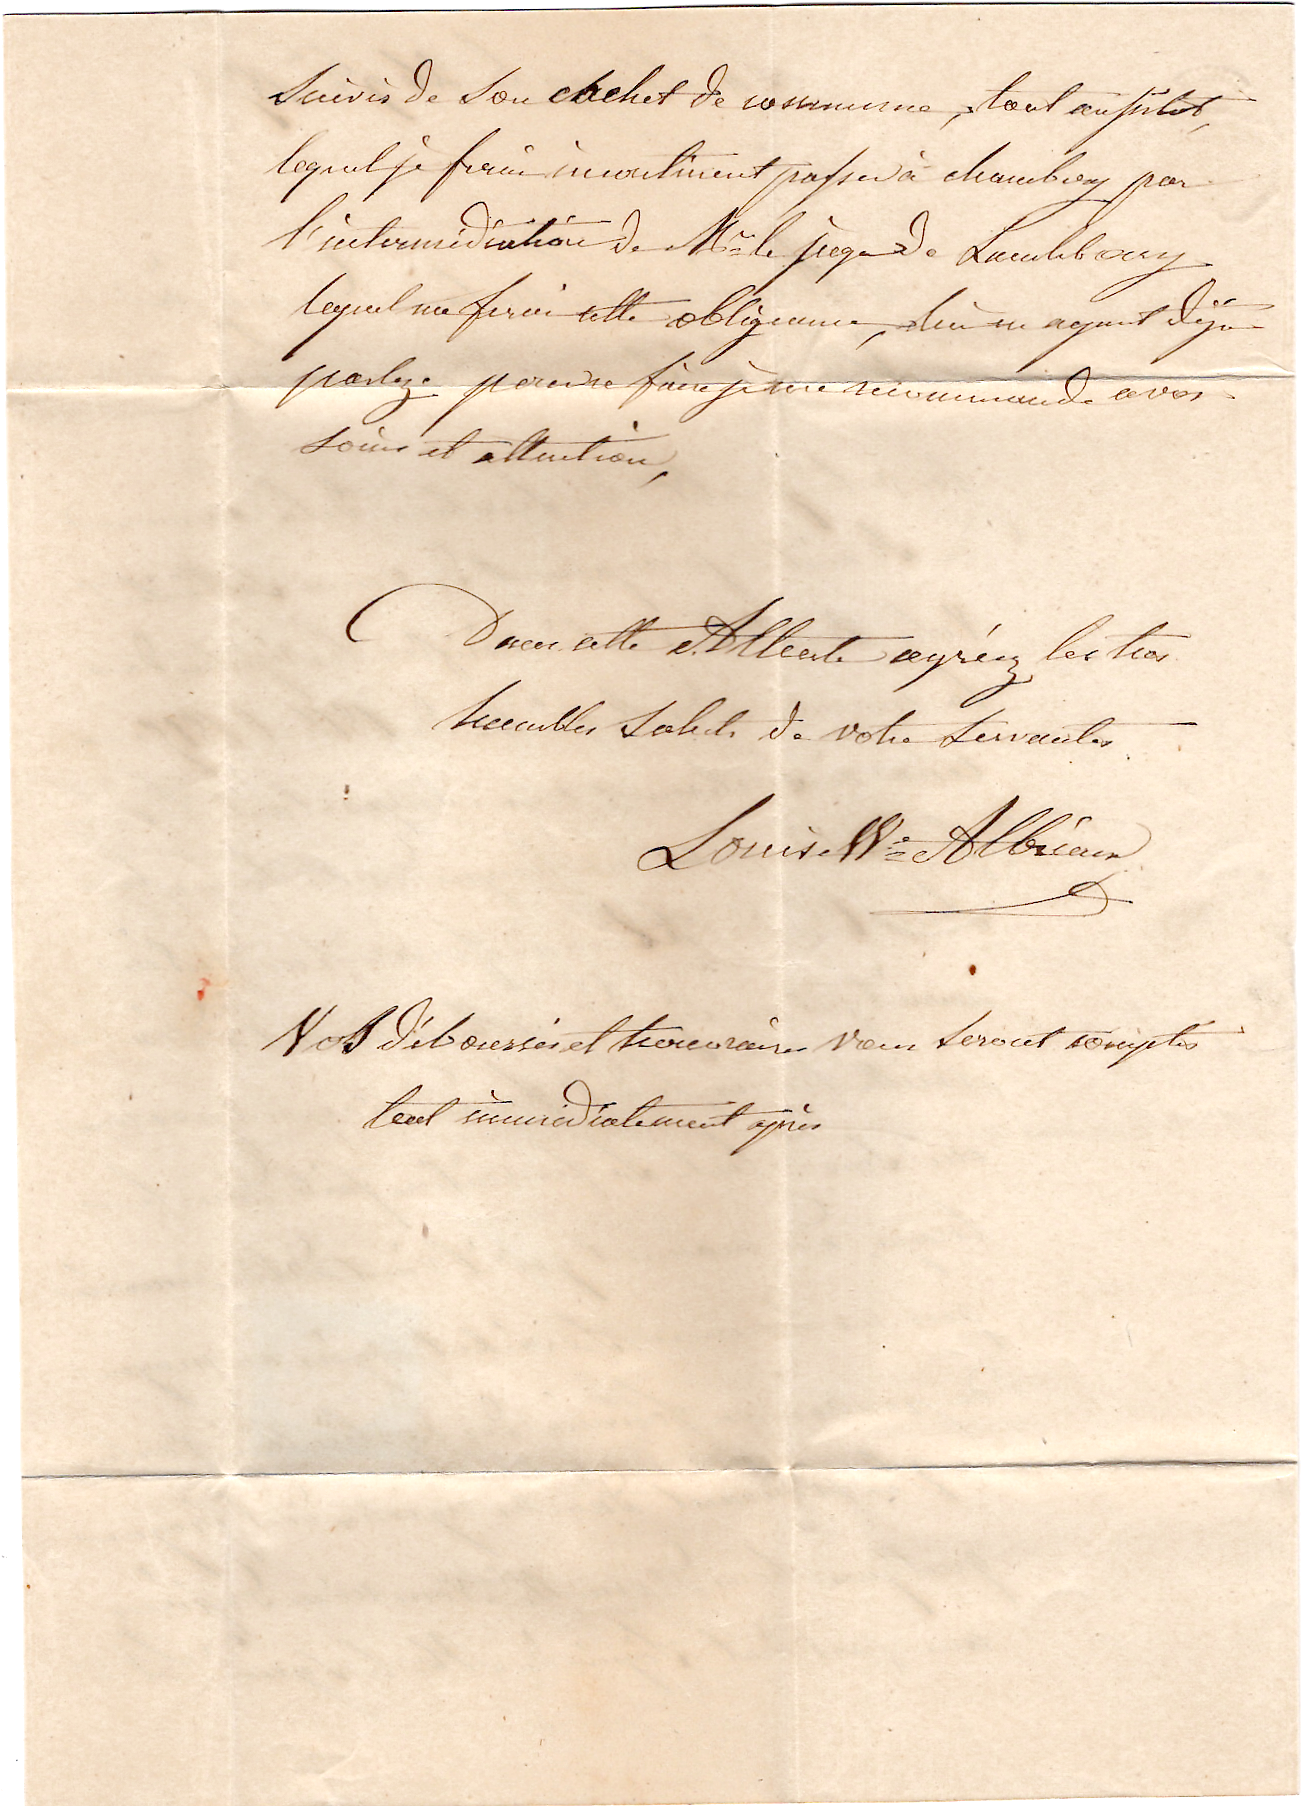 Suivis de son cachet de commune, tout aussitot,
lequel je ferai incontinent passer à chambery par
l'intermédiation de Mr le juge de
lequel me ferai cette obligeance, lui en ayant déja
parlez pour se faire je me recommande a vos
soins et attention,
Dans cette Attente agréez les tres
humbles saluts de votre servante
Louise Ve Albrieux
Vos déboursés et honoraires vous seront comptés
tout immédiatement après